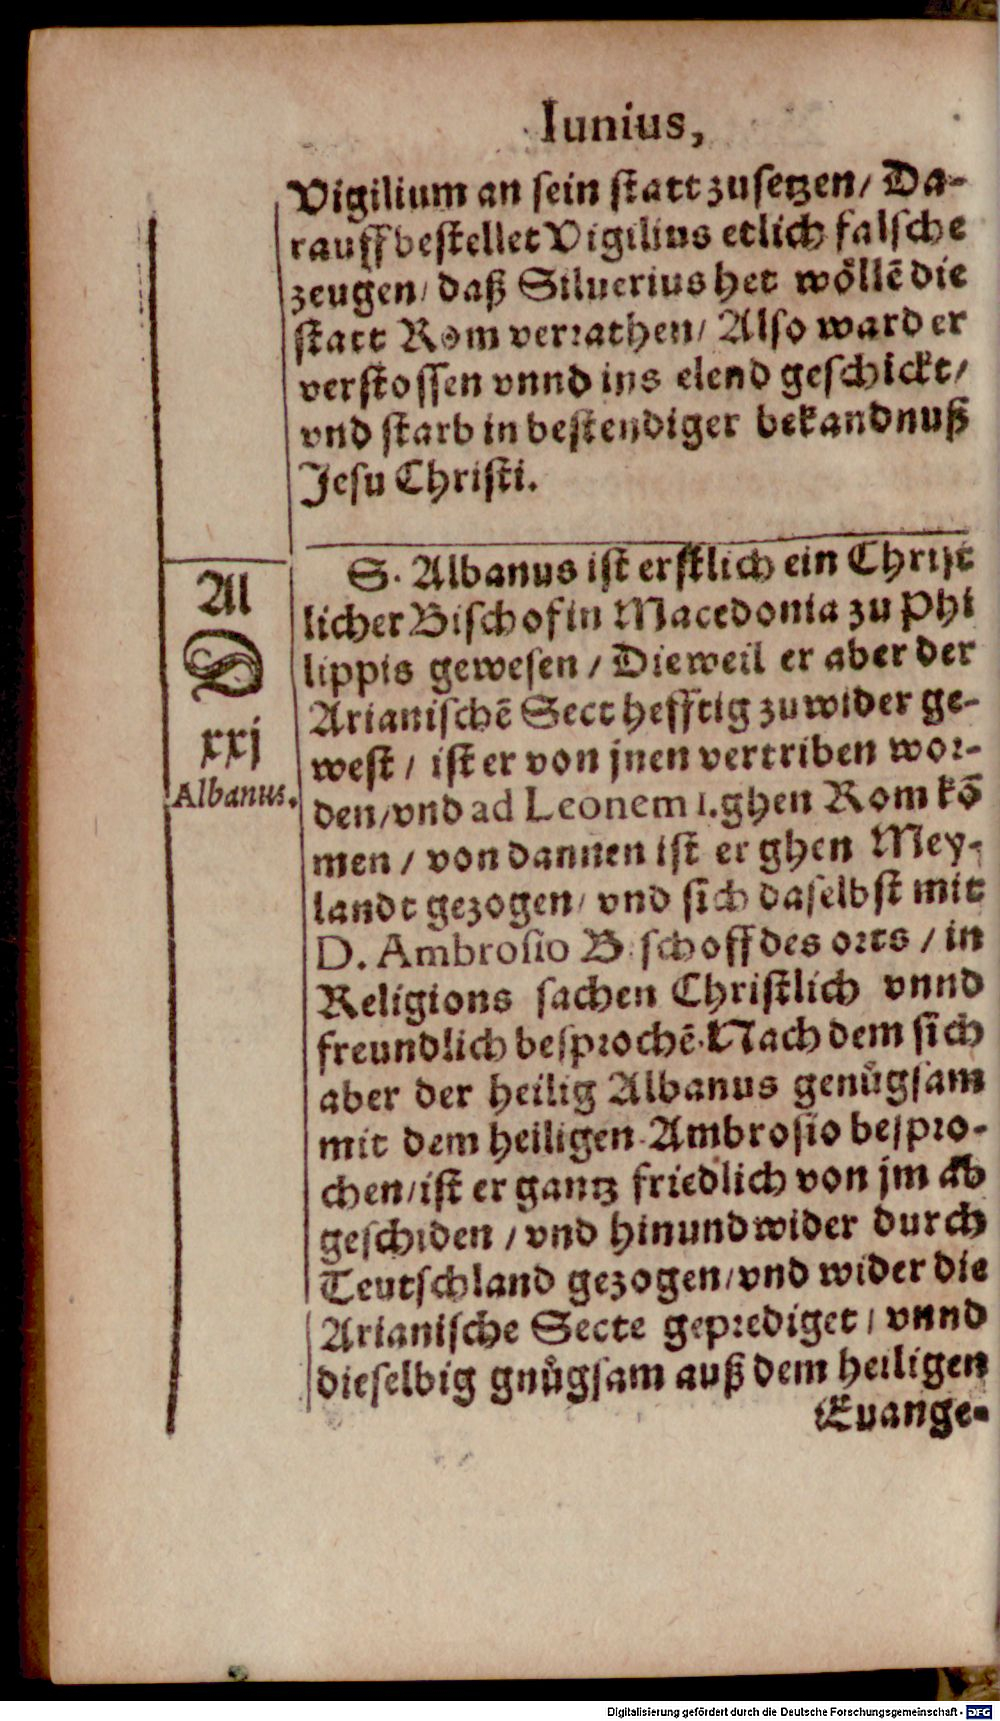 Iunius,
Vigilium an sein statt zusetzen/ Da-
rauff bestellet Vigilius etlich falsche
zeugen/ daß Siluerius het wöllē die
statt Rom verrathen/ Also ward er
verstossen vnnd ins elend geschickt/
vnd starb in bestendiger bekandnuß
Jesu Christi.
Al
D
xxj
Albanus.
S. Albanus ist erstlich ein Christ
licher Bischof in Macedonia zu Phi
lippis gewesen / Dieweil er aber der
Arianischē Sect hefftig zuwider ge-
west / ist er von jnen vertriben wor-
den/vnd ad Leonem 1. ghen Rom kō
men / von dannen ist er ghen Mey-
landt gezogen/ vnd sich daselbst mit
D. Ambrosio Bischoff des orts / in
Religions sachen Christlich vnnd
freundlich besprochē. Nach dem sich
aber der heilig Albanus genůgsam
mit dem heiligen Ambrosio bespro-
chen/ist er gantz friedlich von jm ab
geschiden / vnd hin und wider durch
Teutschland gezogen/vnd wider die
Arianische Secte geprediget / vnnd
dieselbig gnůgsam auß dem heiligen
Euange-
Digitalisierung gefördert durch die Deutsche Forschungsgemeinschaft - DFG